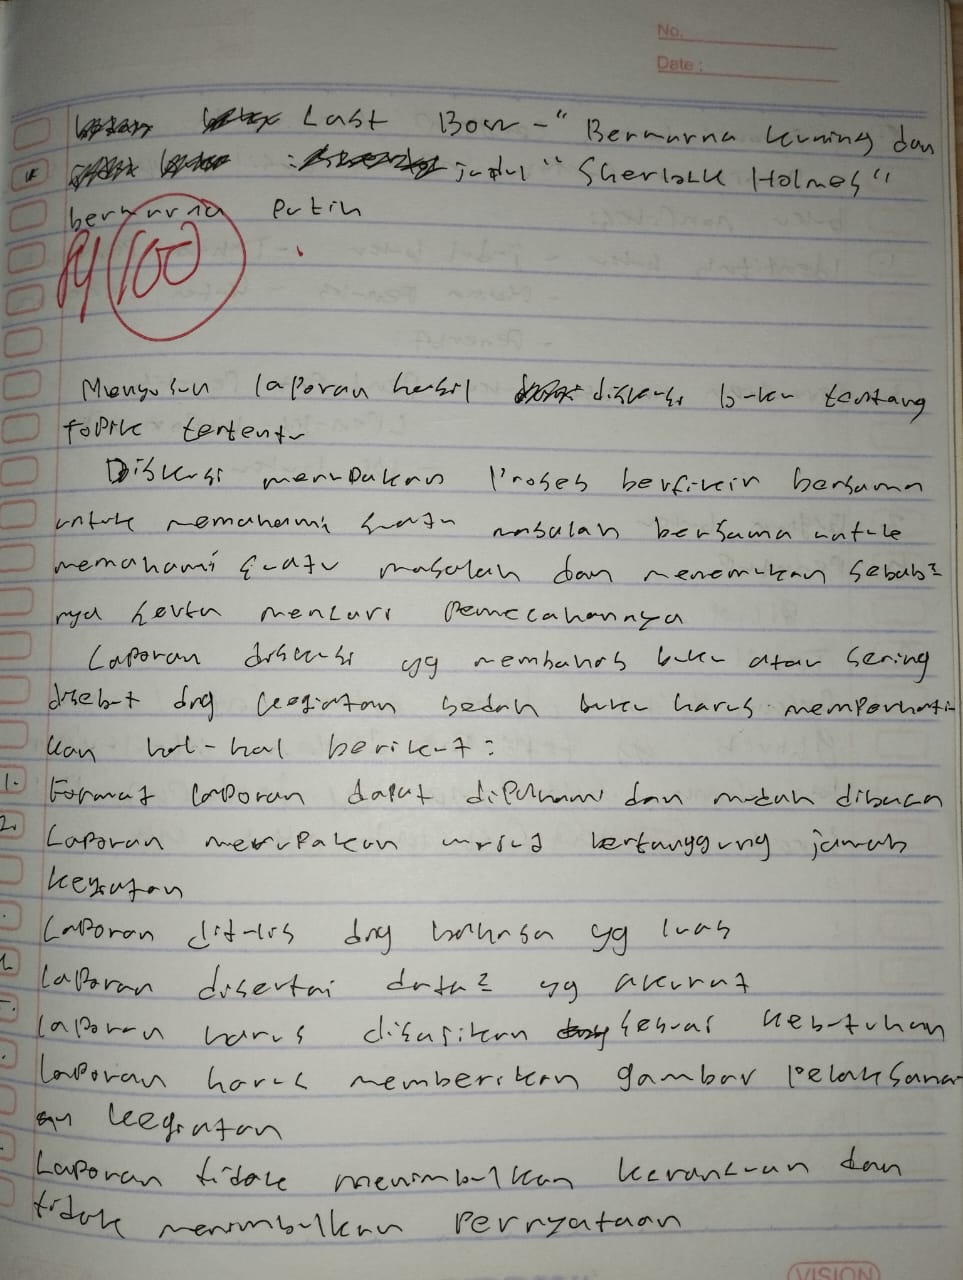 No.
Date:
Last Bow-" Berwarna kuning dan
judul " Sherlock Holmes"
berwarna putih
100
Menyusun laporan hasil diskusi buku tentang
topik tertentu
Diskusi merupakan Proses berfikir bersama
untuk memahami suatu masalah bersama untuk
memahami suatu masalah dan menemukan sebab²
nya serta mencari pemecahannya
Laporan diskusi yg membahas buku atau sering
disebut dng kegiatan bedah buku harus memperhati-
kan hal-hal berikut:
1. Format laporan dapat dipahami dan mudah dibaca
2. Laporan merupakan bertanggung jawab
kegiatan
Laporan ditulis dng bahasa yg luas
Laporan disertai data² yg akurat
Laporan harus disajikan sesuai kebutuhan
Laporan harus memberikan gambar pelaksana-
an kegiatan
Laporan tidak menimbulkan kerancuan dan
tidak menimbulkan pernyataan
VISION